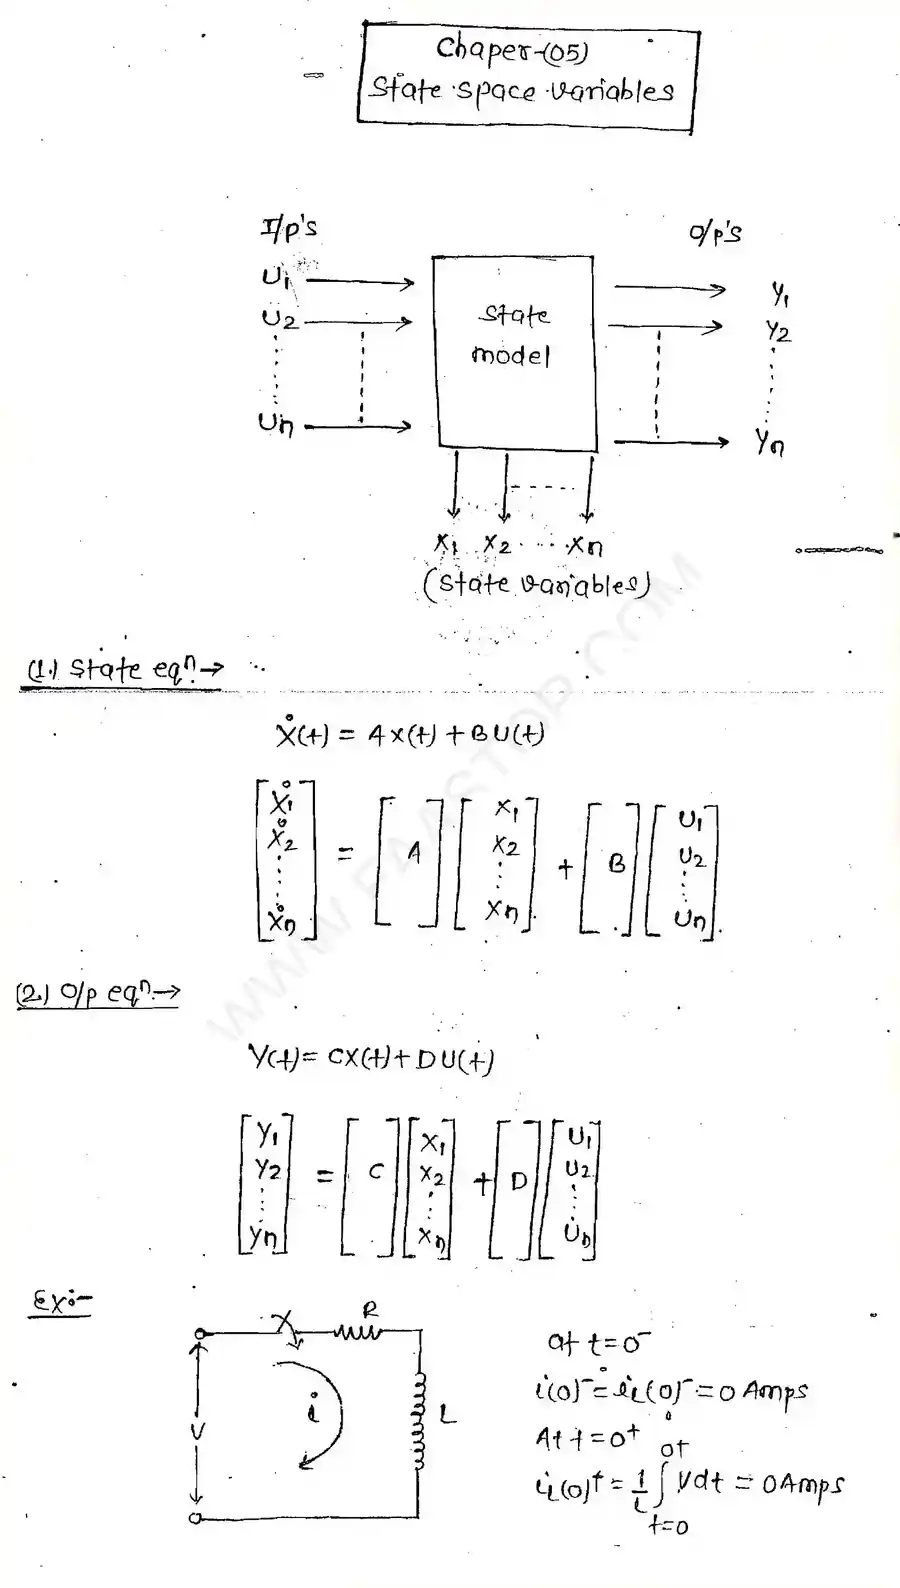 Chaper-(05)
State space variables
I/p's
O/p's
U1
U2
Un
State
model
y1
y2
yn
x1 x2 ..... xn
(State variables)
(1.) State eqn. →
Ẋ(t) = Ax(t) + BU(t)
[Ẋ1 Ẋ2 ..... Ẋn] = [A] [x1 x2 ..... xn] + [B] [U1 U2 ..... Un]
(2.) O/p eqn. →
Y(t) = CX(t) + DU(t)
[Y1 Y2 ..... Yn] = [C] [X1 X2 ..... Xn] + [D] [U1 U2 ..... Un]
Ex:-
R
V
i
L
at t=0⁻
i(0)⁻ = iL(0)⁻ = 0 Amps
At t=0⁺
iL(0)⁺ = 1/L ∫ t=0 0+ Vdt = 0 Amps